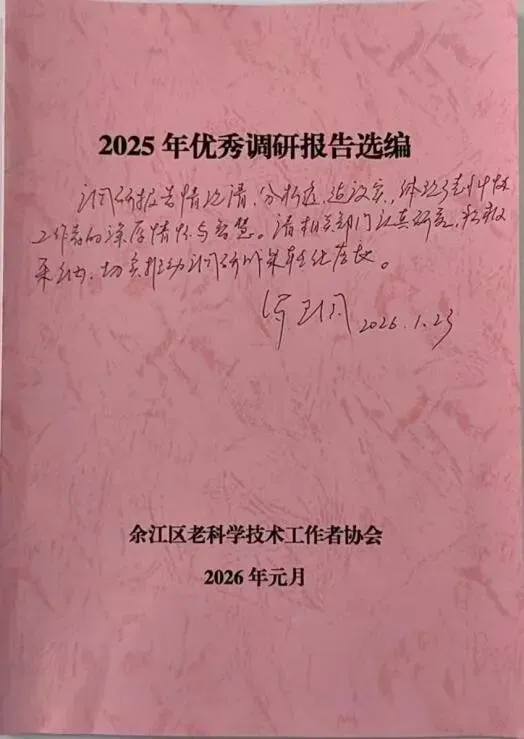 2025年优秀调研报告选编
调研报告情况清,分析透,建议实,体现老科技
工作者的深厚情怀与智慧。请相关部门认真研究,积极
采纳,切实推动调研成果转化落地。
2026.1.23
余江区老科学技术工作者协会
2026年元月